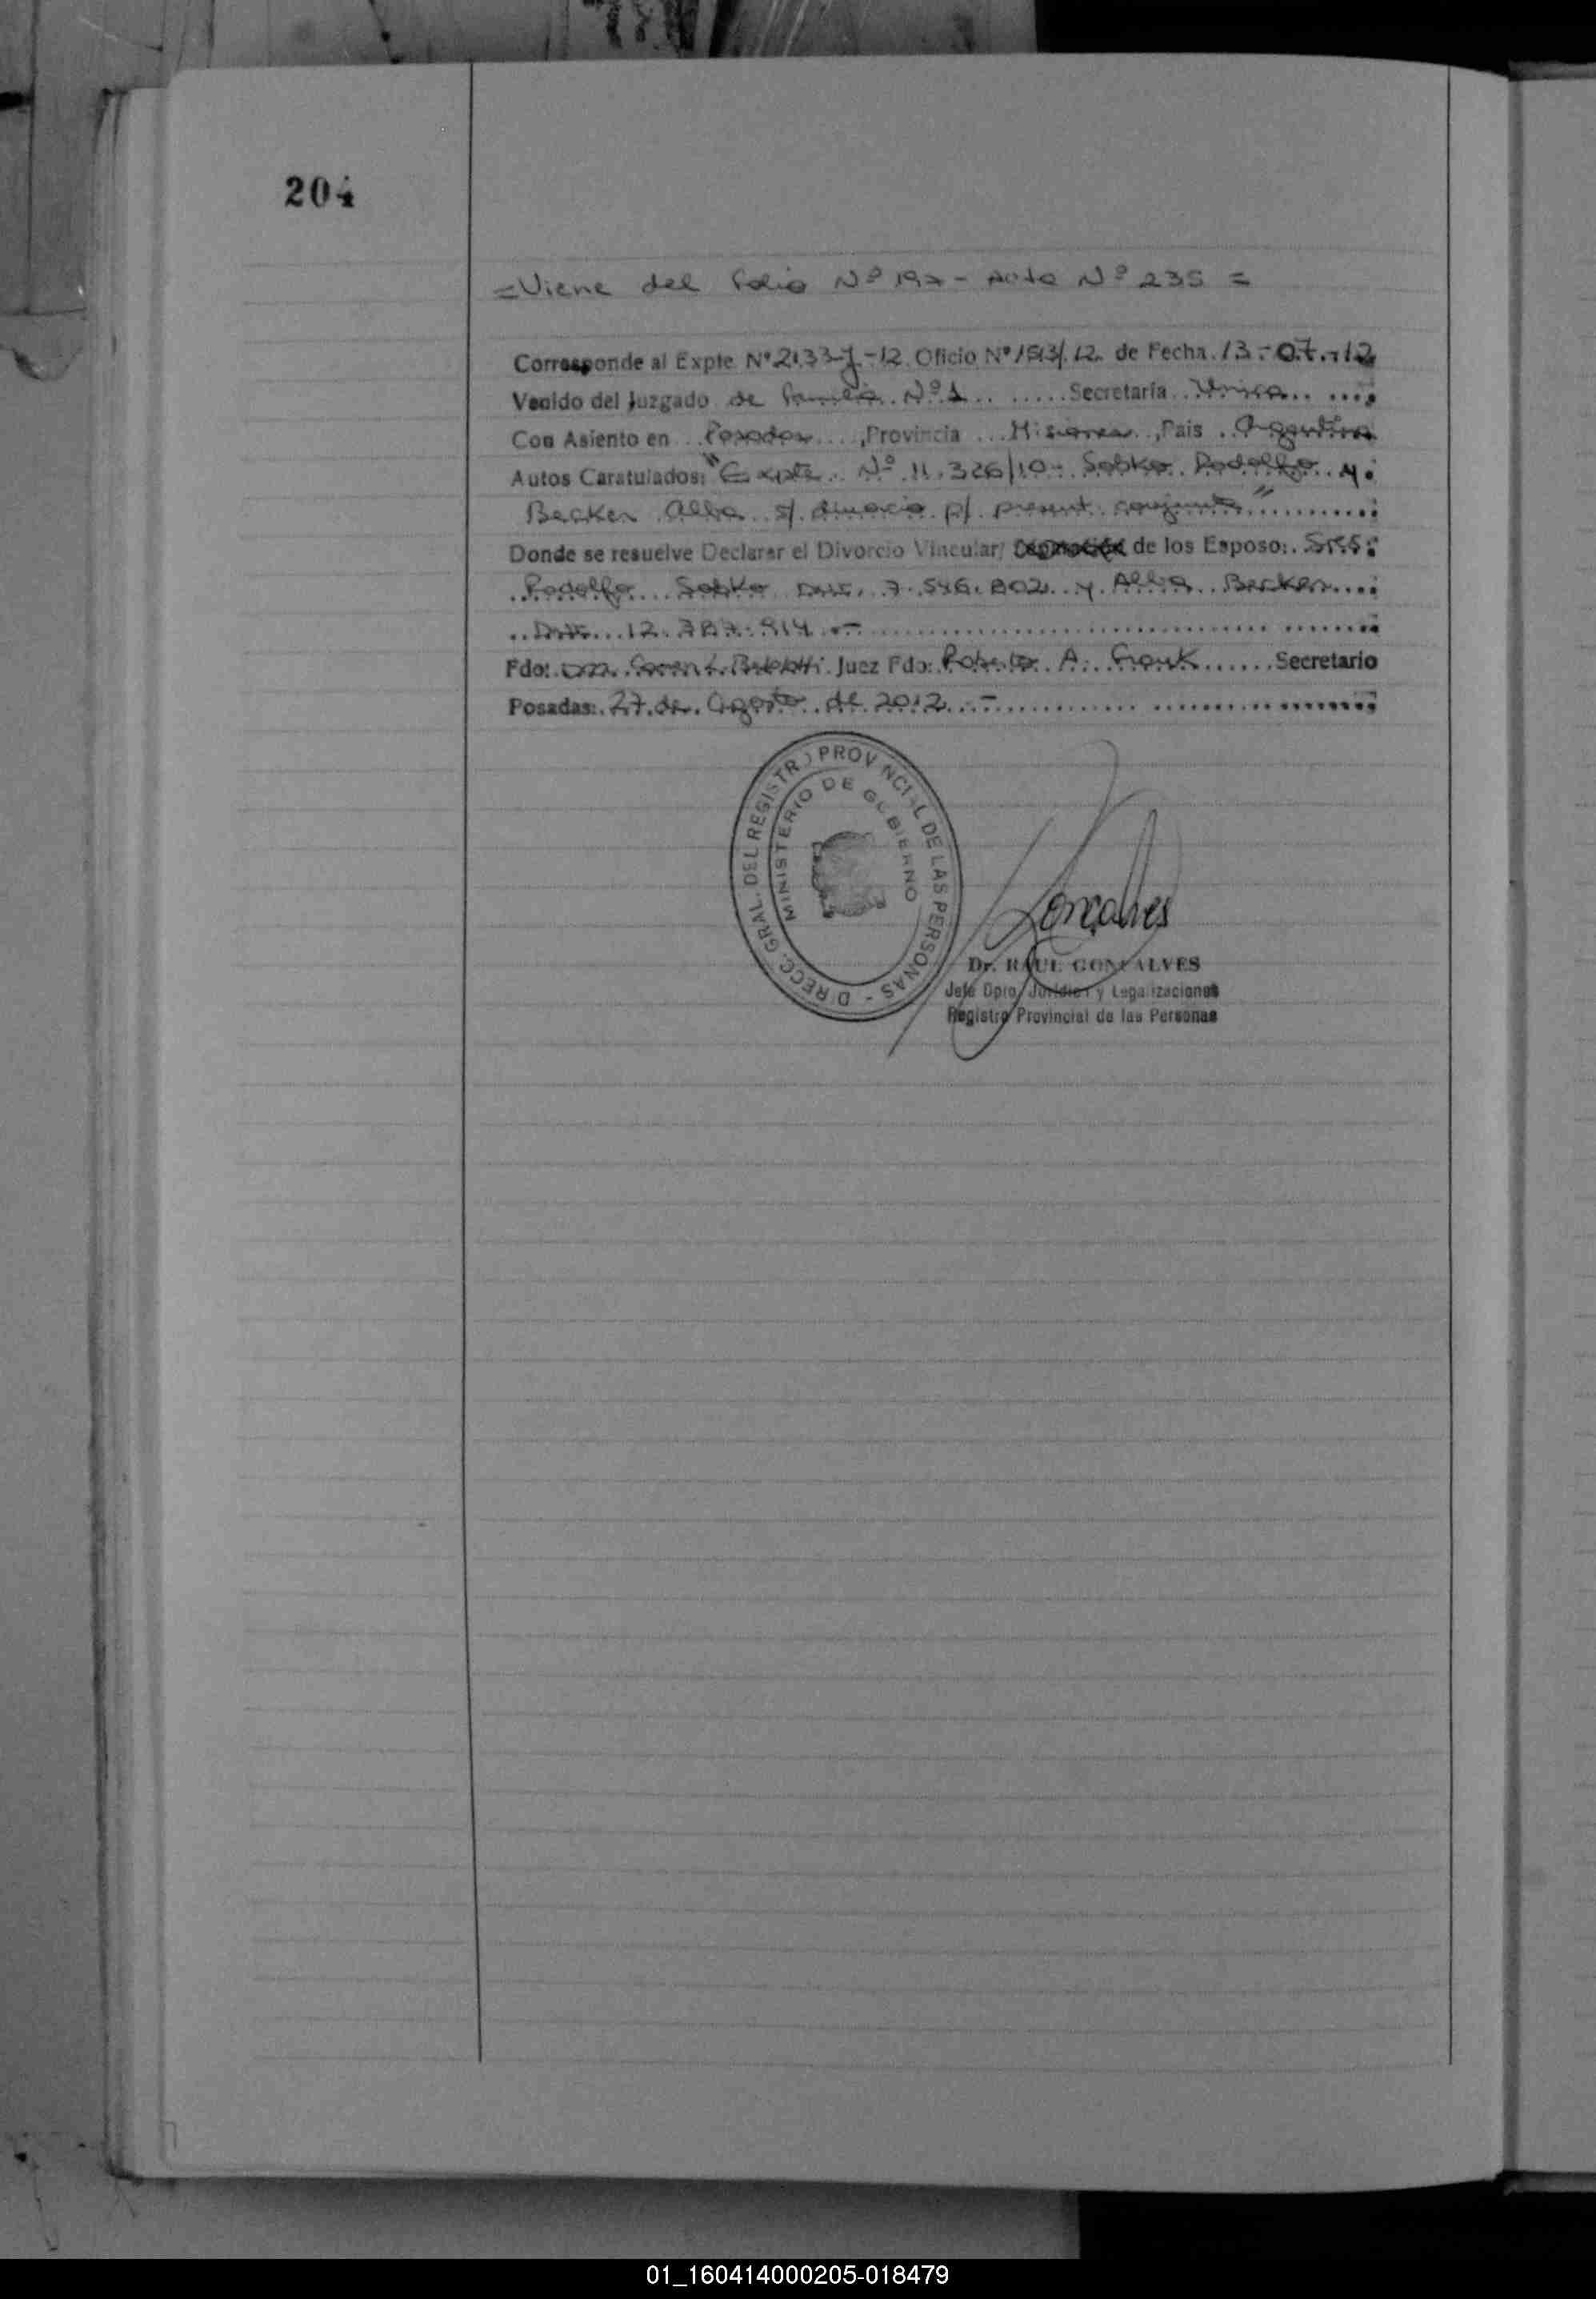 204
=Viene del folio Nº 197 - Acta Nº 235 =
Corresponde al Expte. Nº 2133-y-12 Oficio Nº 1513/12 de Fecha 13-07-12
Venido del Juzgado de Familia Nº 1 Secretaría Unica
Con Asiento en Posadas, Provincia Misiones, Pais Argentina
Autos Caratulados: "Expte. Nº 11.326/10 - Sobko Rodolfo y
Becker Alba s/ divorcio p/ present. conjunta"
Donde se resuelve Declarar el Divorcio Vincular/ de los Esposo: Sres:
Rodolfo Sobko DNI. 7.546.802 y Alba Becker
DNI. 12.787.914.-
Fdo: Dra. Juez Fdo: Roberto A. Secretario
Posadas: 27 de Agosto de 2012.-
DIRECC. GRAL. DEL REGISTRO PROVINCIAL DE LAS PERSONAS -
MINISTERIO DE GOBIERNO
Gonçalves
Dr. RAUL GONCALVES
Jefe Dpto. Jurídico y Legalizaciones
Registro Provincial de las Personas
01_160414000205-018479